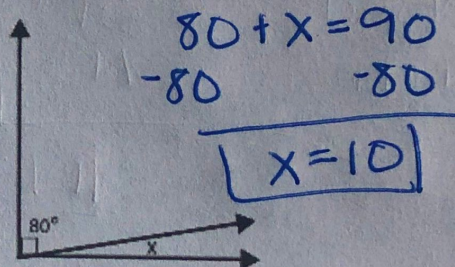 80 + x = 90
-80 -80
x = 10
80°
x